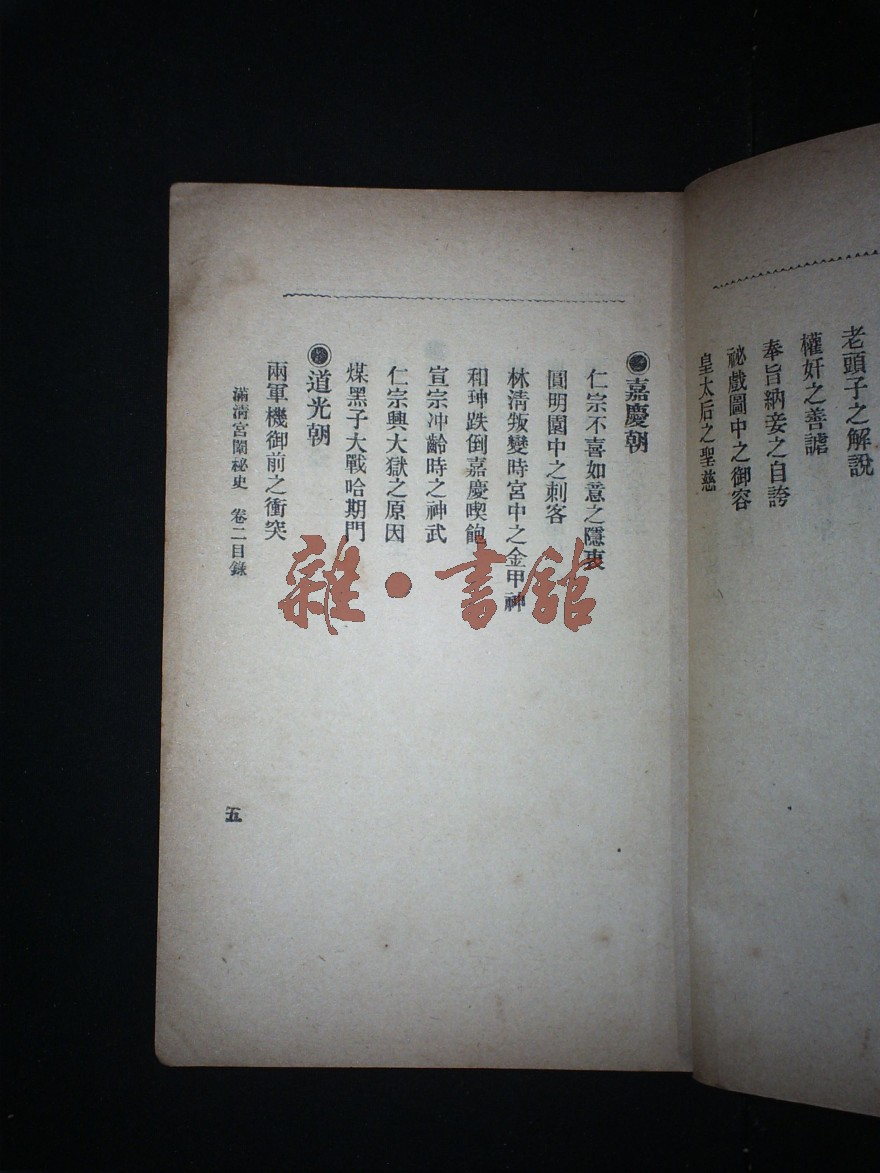 老頭子之解說
權奸之善謔
奉旨納妾之自誇
祕戲圖中之御容
皇太后之聖慈
嘉慶朝
仁宗不喜如意之隱衷
圓明園中之刺客
林清叛變時宮中之金甲神
和珅跌倒嘉慶喫飽
宣宗冲齡時之神武
仁宗興大獄之原因
煤黑子大戰哈期門
道光朝
兩軍機御前之衝突
滿清宮闈祕史 卷二目錄
五
雜·書館